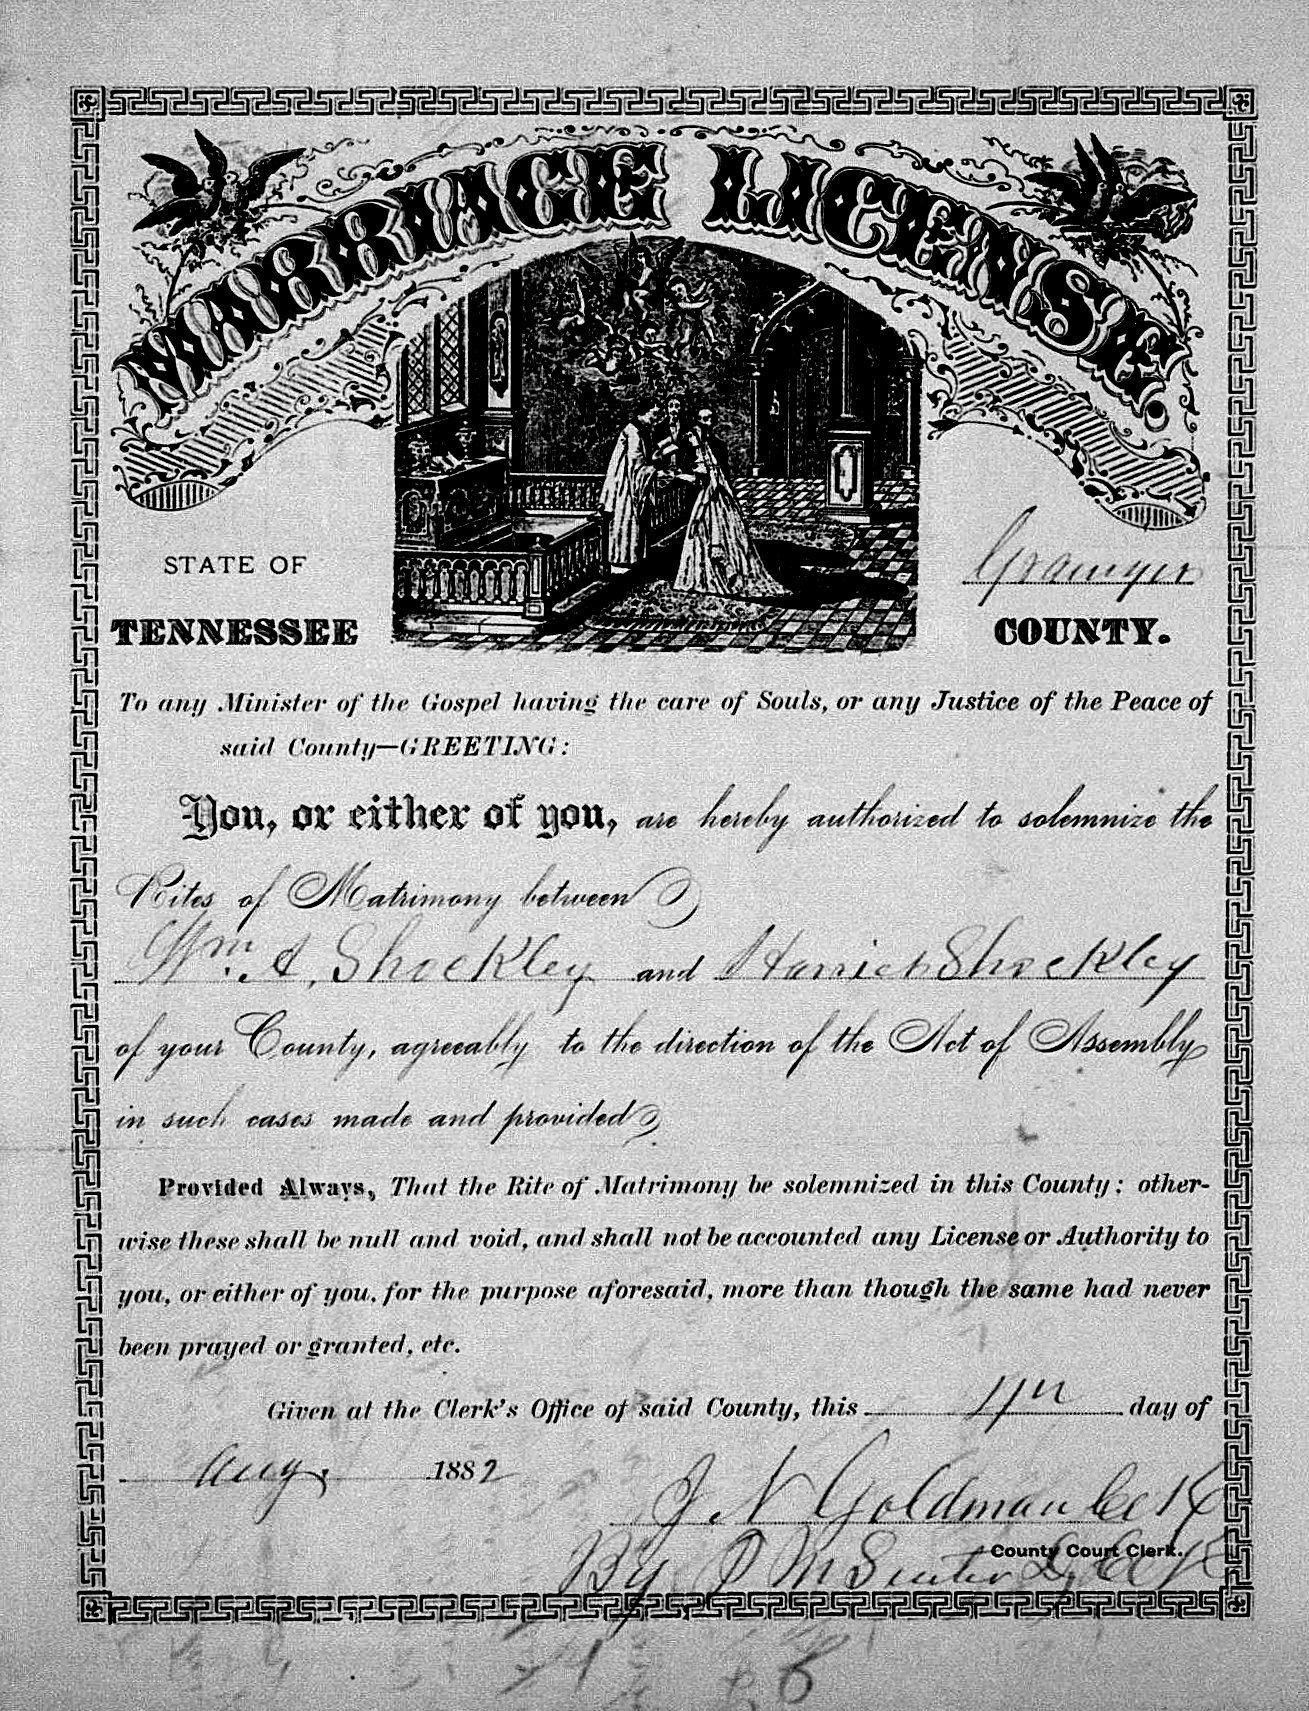 MARRIAGE LICENSE
STATE OF
TENNESSEE
Grainger
COUNTY.
To any Minister of the Gospel having the care of Souls, or any Justice of the Peace of
said County—GREETING:
You, or either of you, are hereby authorized to solemnize the
Rites of Matrimony between
Wm. A. Shockley and Harriet Shockley
of your County, agreeably to the direction of the Act of Assembly
in such cases made and provided
Provided Always, That the Rite of Matrimony be solemnized in this County: other-
wise these shall be null and void, and shall not be accounted any License or Authority to
you, or either of you, for the purpose aforesaid, more than though the same had never
been prayed or granted, etc.
Given at the Clerk's Office of said County, this day of
Aug. 1882
J. N Goldman
County Court Clerk.
By M